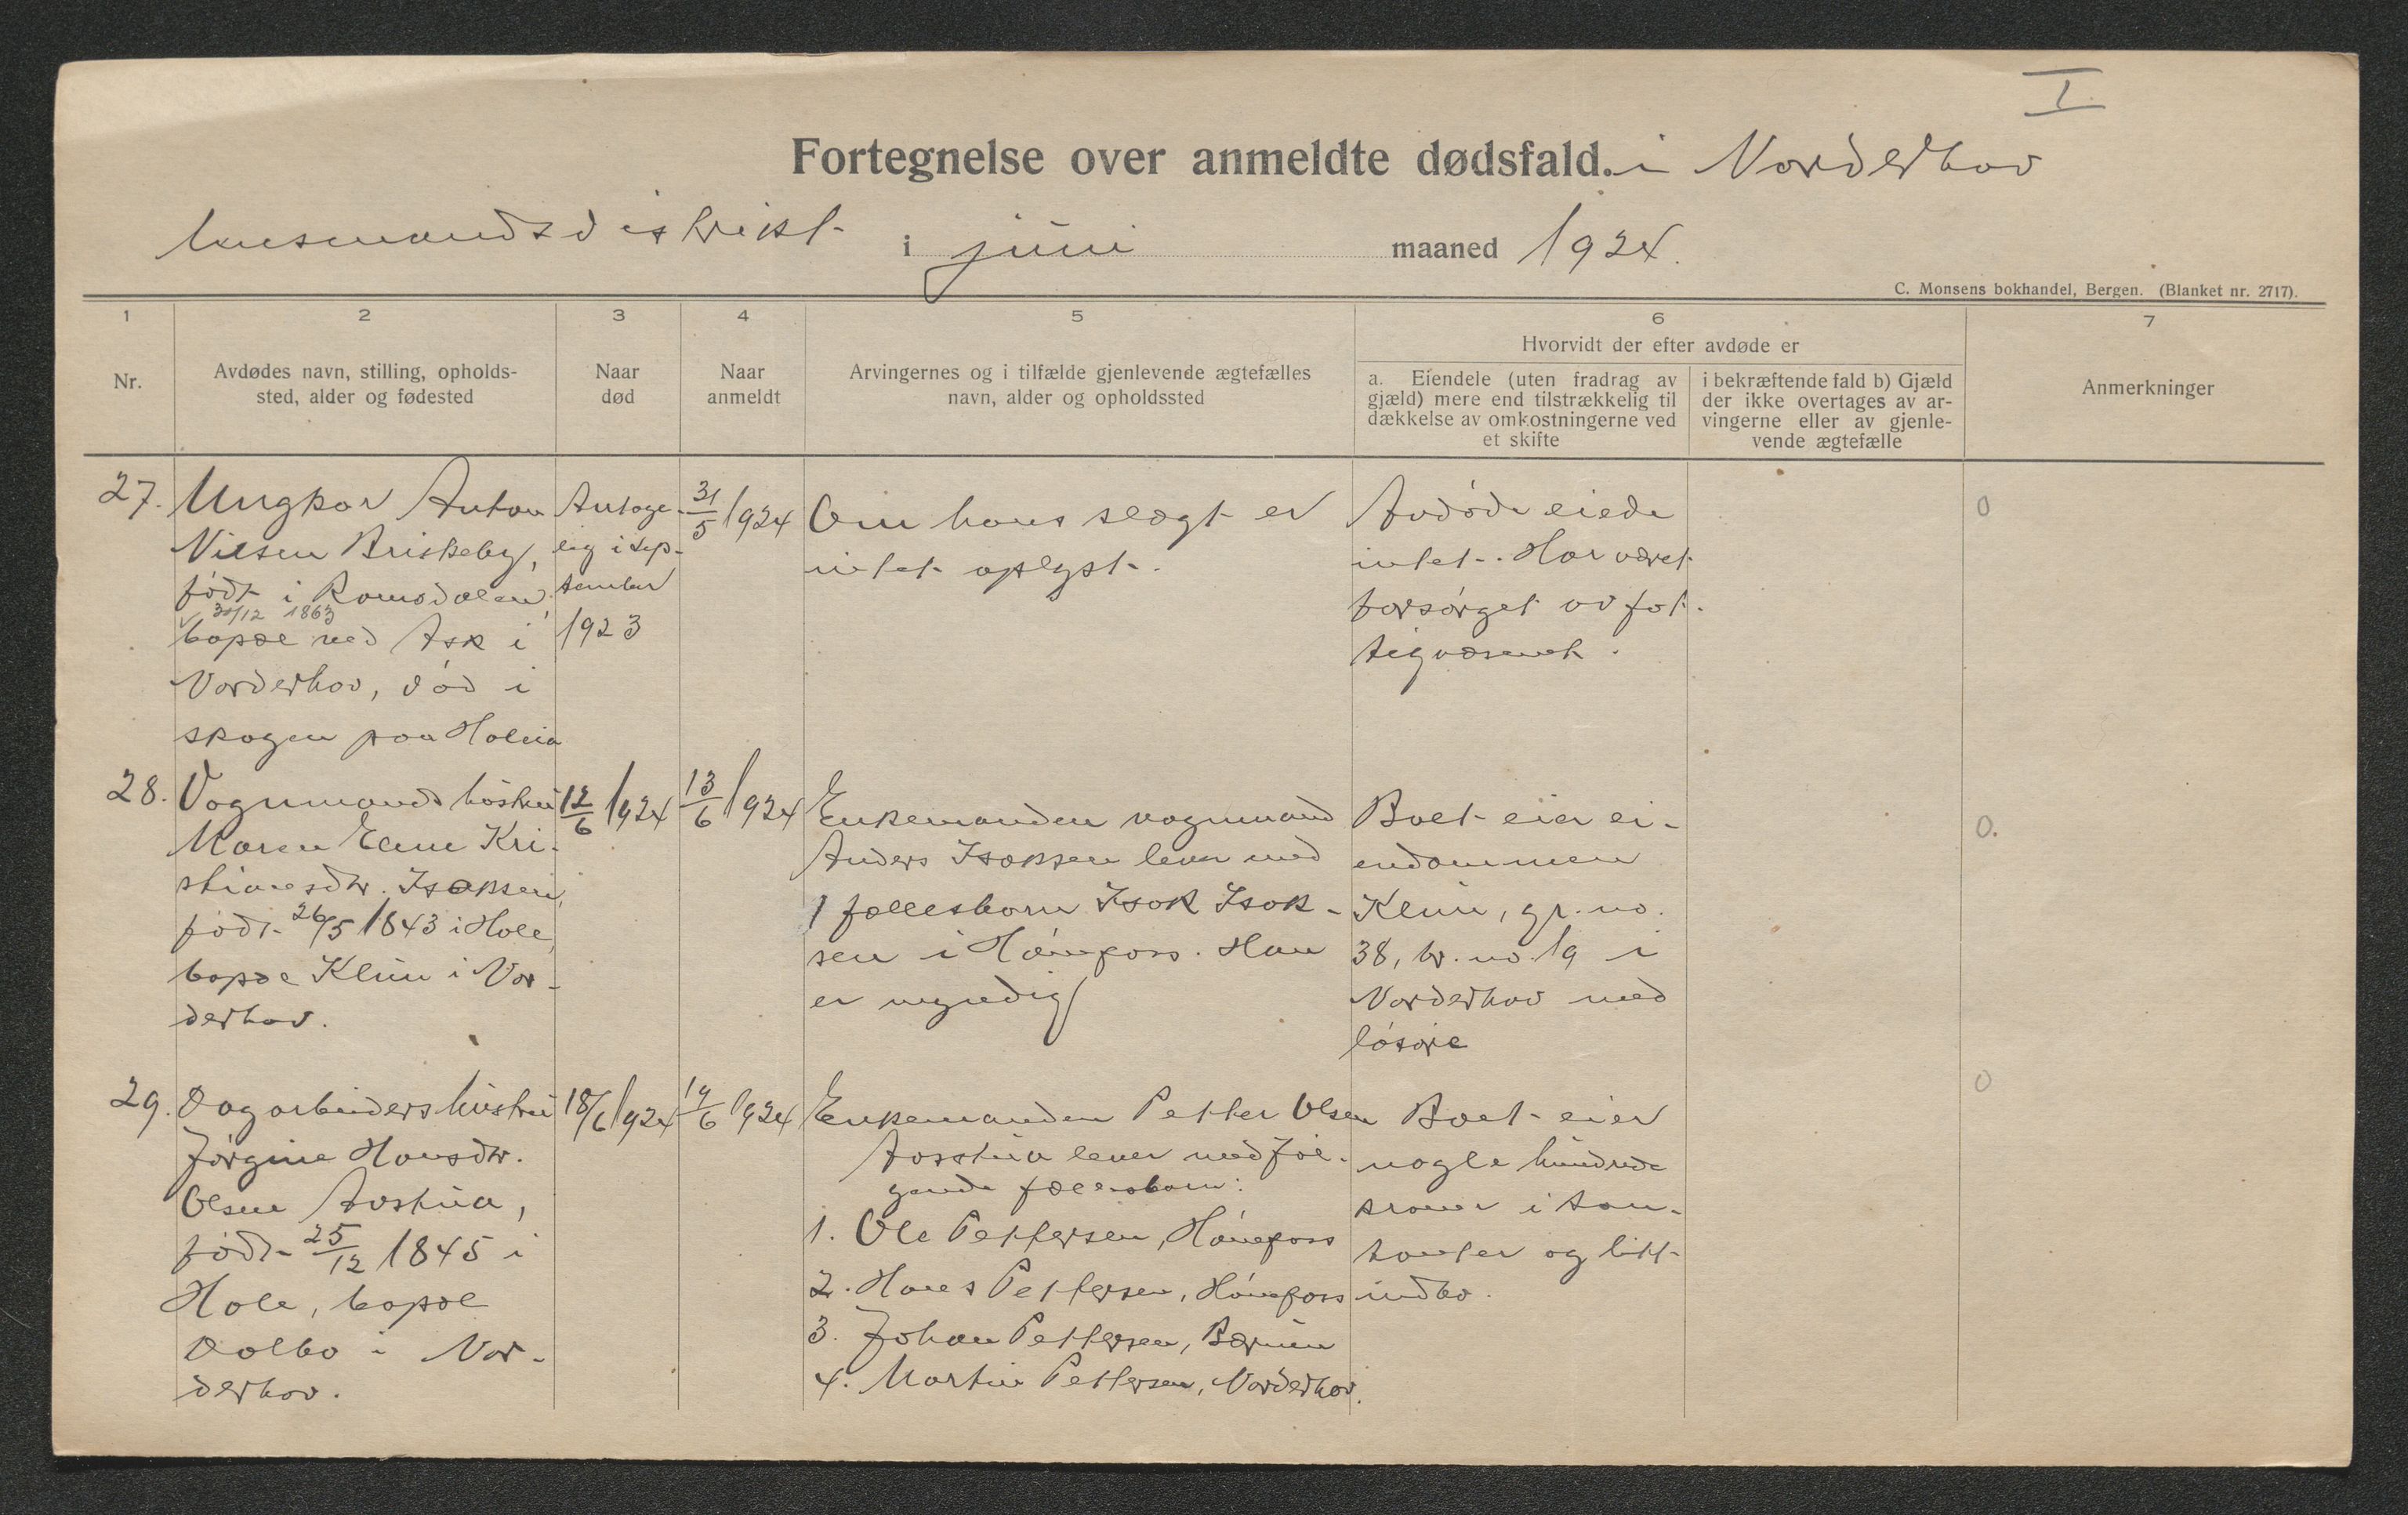 I
Fortegnelse over anmeldte dødsfald. i Norderhov
lensmandsdistrikt i juni maaned 1924.
C. Monsens bokhandel, Bergen. (Blanket nr. 2717).
1 2 3 4 5 6 7
Nr.
Avdødes navn, stilling, opholds-
sted, alder og fødested
Naar
død
Naar
anmeldt
Arvingernes og i tilfælde gjenlevende ægtefælles
navn, alder og opholdssted
Hvorvidt der efter avdøde er
a. Eiendele (uten fradrag av
gjæld) mere end tilstrækkelig til
dækkelse av omkostningerne ved
et skifte
i bekræftende fald b) Gjæld
der ikke overtages av ar-
vingerne eller av gjenle-
vende ægtefælle
Anmerkninger
27.
Ungkar Anton
Nilsen Briskeby,
født i Romsdalen,
31/12 1863
bopæl ved Ask i
Norderhov, død i
skogen paa Holeia
Antage-
lig i sep-
tember
1923
31/5 1924
Om hans slægt er
intet oplyst.
Avdøde eiede
intet. Har været
forsørget av fat-
tigvæsenet.
0
28.
Vognmands hustru
Maren Eline Kri-
stiansdtr. Isaksen,
født 26/5 1843 i Hole,
bopæl Klim i Nor-
derhov.
12/6 1924
13/6 1924
Enkemanden vognmand
Anders Isaksen lever med
1 fællesbarn Isak Isak-
sen i Hønefoss. Han
er myndig
Boet eier ei-
endommen
Klim, gr. no.
38, br. no. 19 i
Norderhov med
løsøre
0.
29.
Dagarbeiders hustru
Jørgine Hansdtr.
Olsen Aostua,
født 25/12 1845 i
Hole, bopæl
Dalbo i Nor-
derhov.
18/6 1924
19/6 1924
Enkemanden Petter Olsen
Aosstua lever med føl-
gende fællesbarn:
1. Ole Pettersen, Hønefoss
2. Hans Pettersen, Hønefoss
3. Johan Pettersen, Bærum
4. Martin Pettersen, Norderhov.
Boet eier
nogle hundrede
kroner i kon-
tanter og litt
indbo.
0